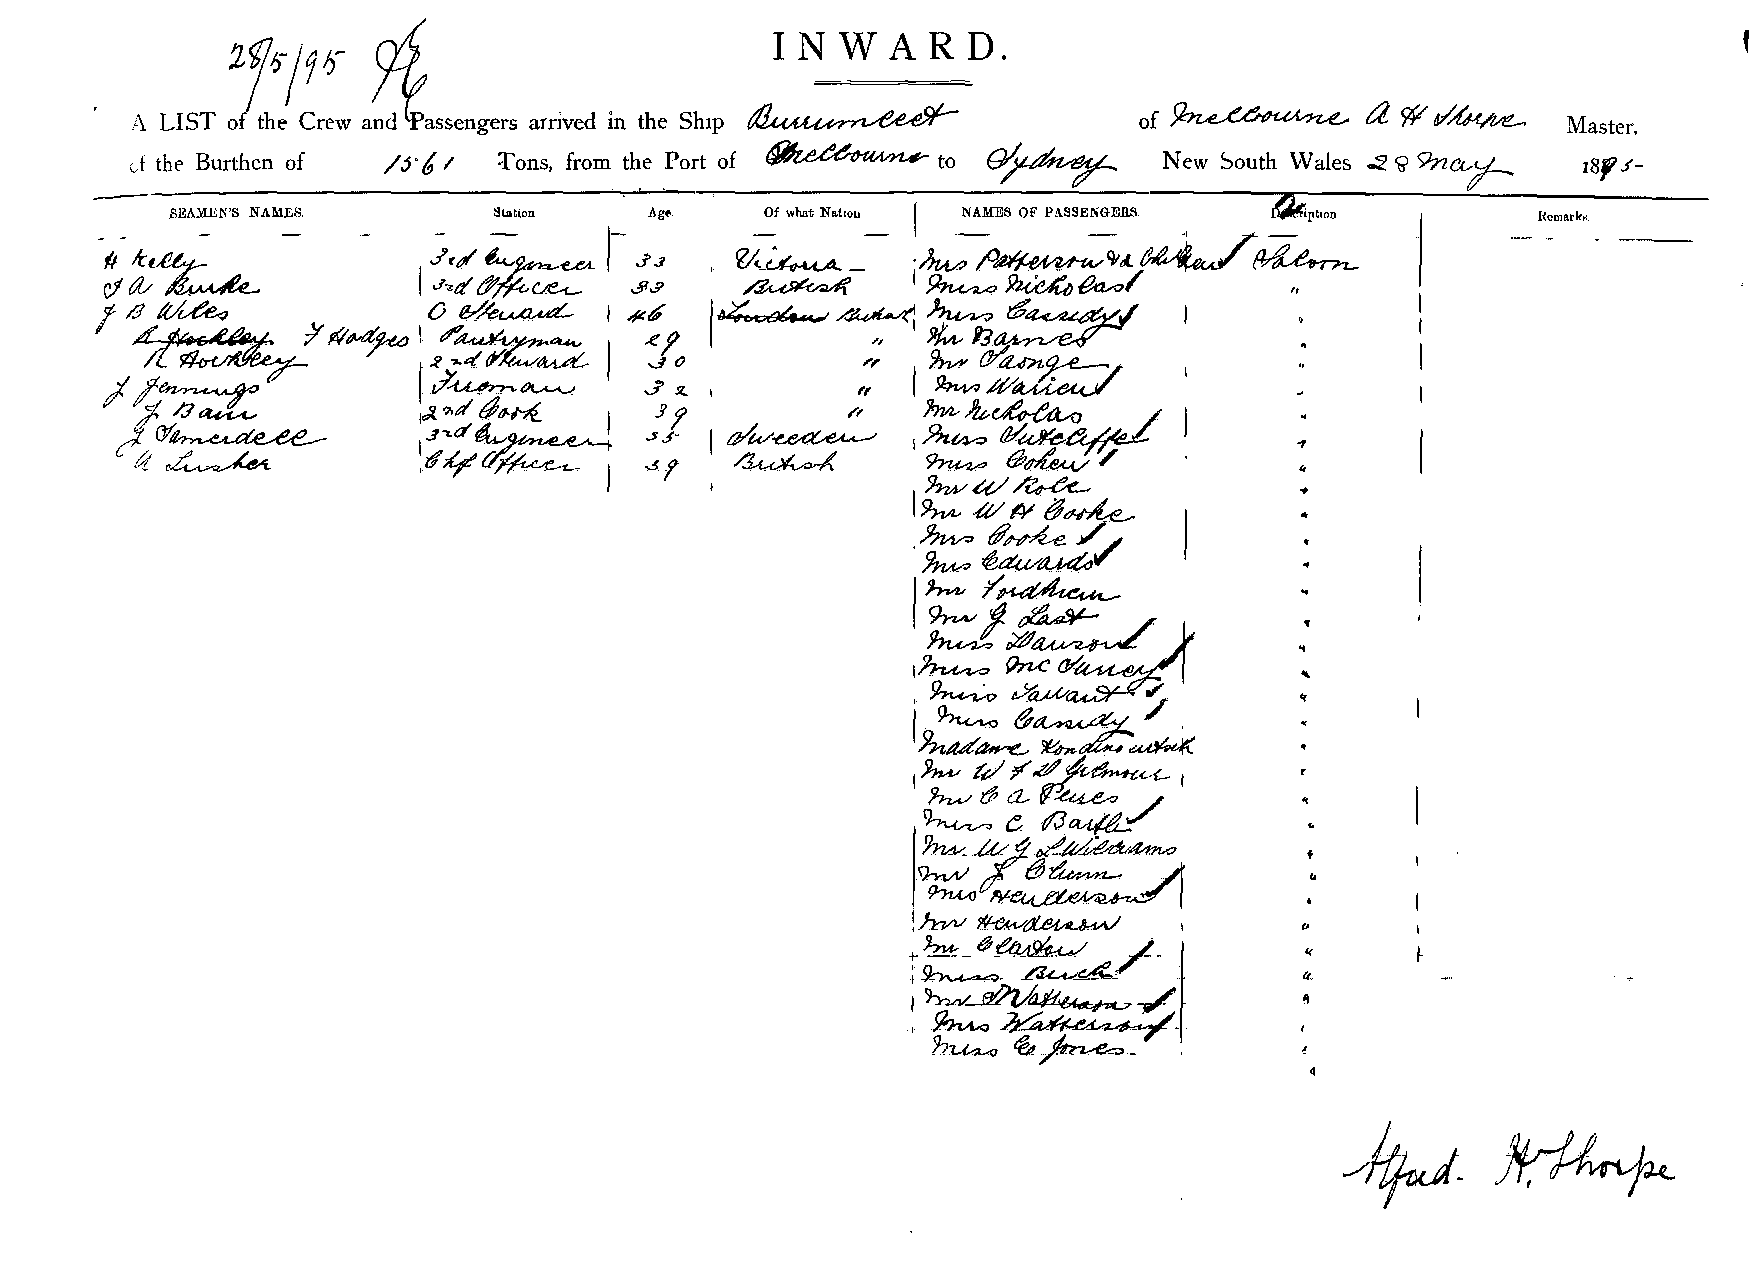 28/5/95
INWARD.
A LIST of the Crew and Passengers arrived in the Ship Burrumbeet of Melbourne A H Thorpe Master,
of the Burthen of 1561 Tons, from the Port of Melbourne to Sydney New South Wales 28 May 1895
SEAMEN'S NAMES. Station Age. Of what Nation NAMES OF PASSENGERS. Description Remarks.
H Kelly 3rd Engineer 33 Victoria Mrs Patterson & 2 Children Saloon
J A Burke 3rd Officer 33 British Miss Nicholas "
J B Wiles C Steward 46 London British Miss Cassidy "
R Hockley F Hodges Pantryman 29 " Mr Barnes "
R Hockley 2nd Steward 30 " Mr "
J Jennings Fireman 32 " Mrs Warren "
J Bain 2nd Cook 39 " Mr Nicholas
J 3rd Engineer 35 Sweeden Miss Sutcliffe "
A Lusher Chf Officer 39 British Miss Cohen "
Mr W Role "
Mr W H Cooke "
Mrs Cooke "
Mrs Edwards "
Mr Fordham "
Mr G Last "
Miss Dawson "
Miss Mc "
Miss Tarrant "
Miss Cassidy "
Madame "
Mr W F D Gilmour "
Mr C A "
Miss C "
Mr W G L Williams "
Mr J Clunn "
Mrs Henderson "
Mr Henderson "
Mr Claxton "
Miss Buck "
Mr Watterson "
Mrs Watterson "
Miss E Jones "
"
Alfred. H. Thorpe